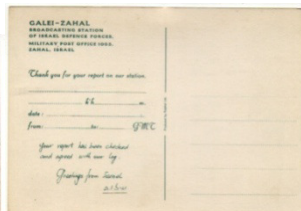 GALEI-ZAHAL
BROADCASTING STATION
OF ISRAEL DEFENCE FORCES,
MILITARY POST OFFICE 1005,
ZAHAL, ISRAEL
Thank you for your report on our station.
on
date:
from: to GMT
Your report has been checked
and agreed with our log.
Greetings from Israel